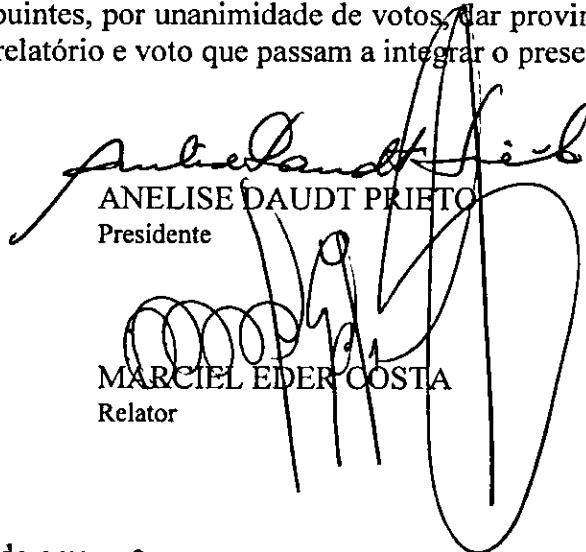 buintes, por unanimidade de votos, dar provin
relatório e voto que passam a integrar o prese
ANELISE DAUDT PRIETO
Presidente
MARCIEL EDER COSTA
Relator